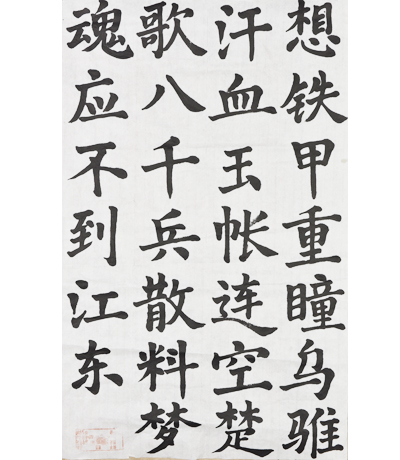 想铁甲重瞳乌骓
汗血玉帐连空楚
歌八千兵散料梦
魂应不到江东